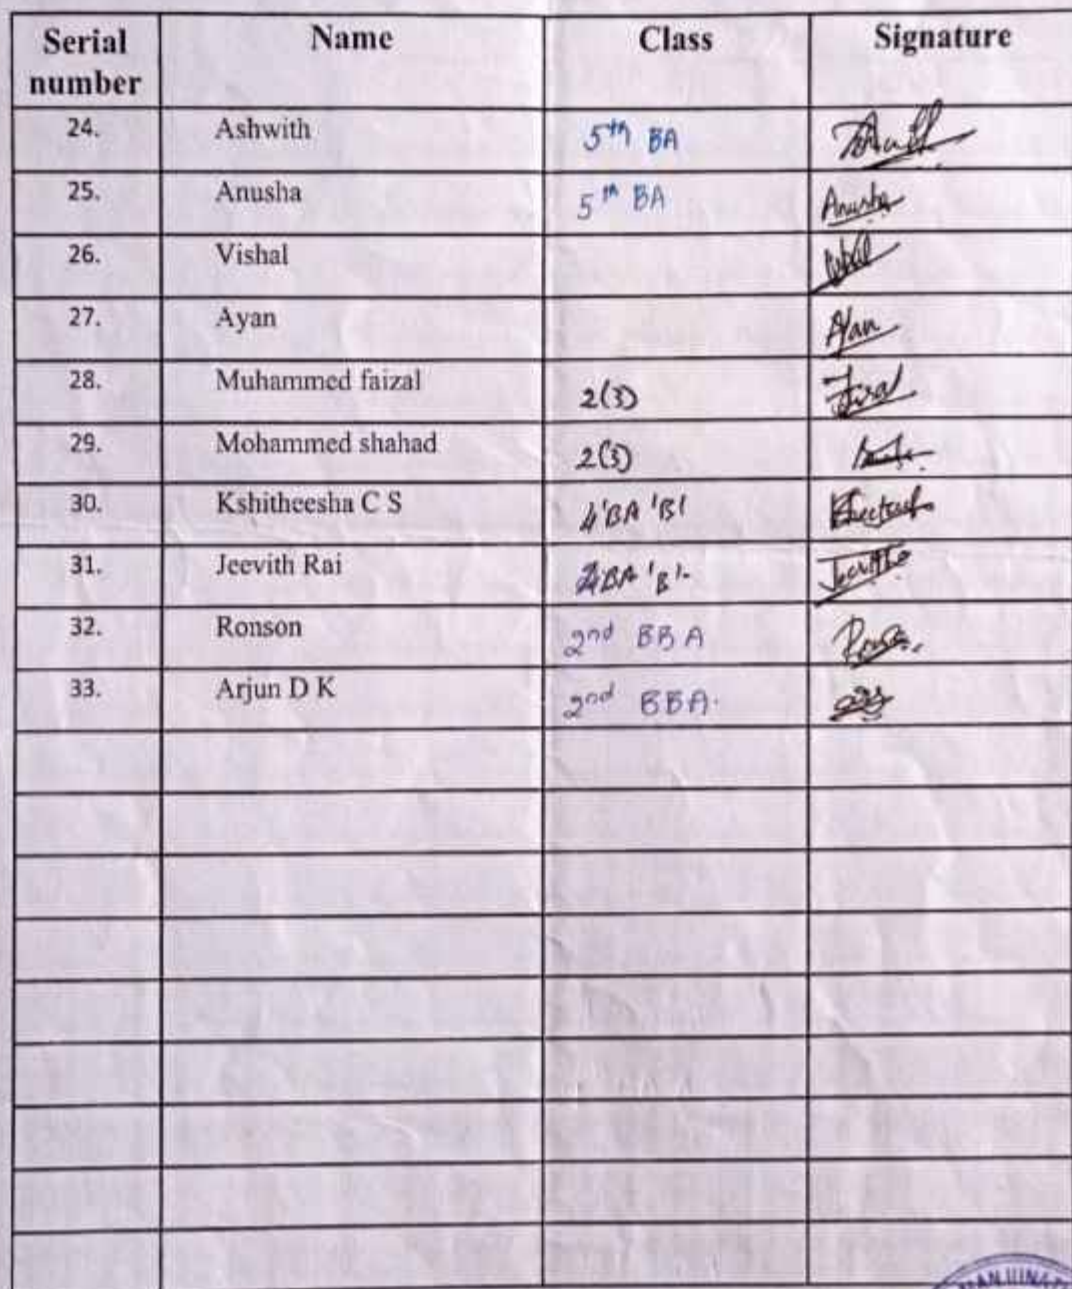 Serial number Name Class Signature
24. Ashwith 5th BA
25. Anusha 5th BA Anusha
26. Vishal
27. Ayan Ayan
28. Muhammed faizal 2(3)
29. Mohammed shahad 2(3)
30. Kshitheesha C S BA 'B'
31. Jeevith Rai BA 'B'
32. Ronson 2nd BBA
33. Arjun D K 2nd BBA